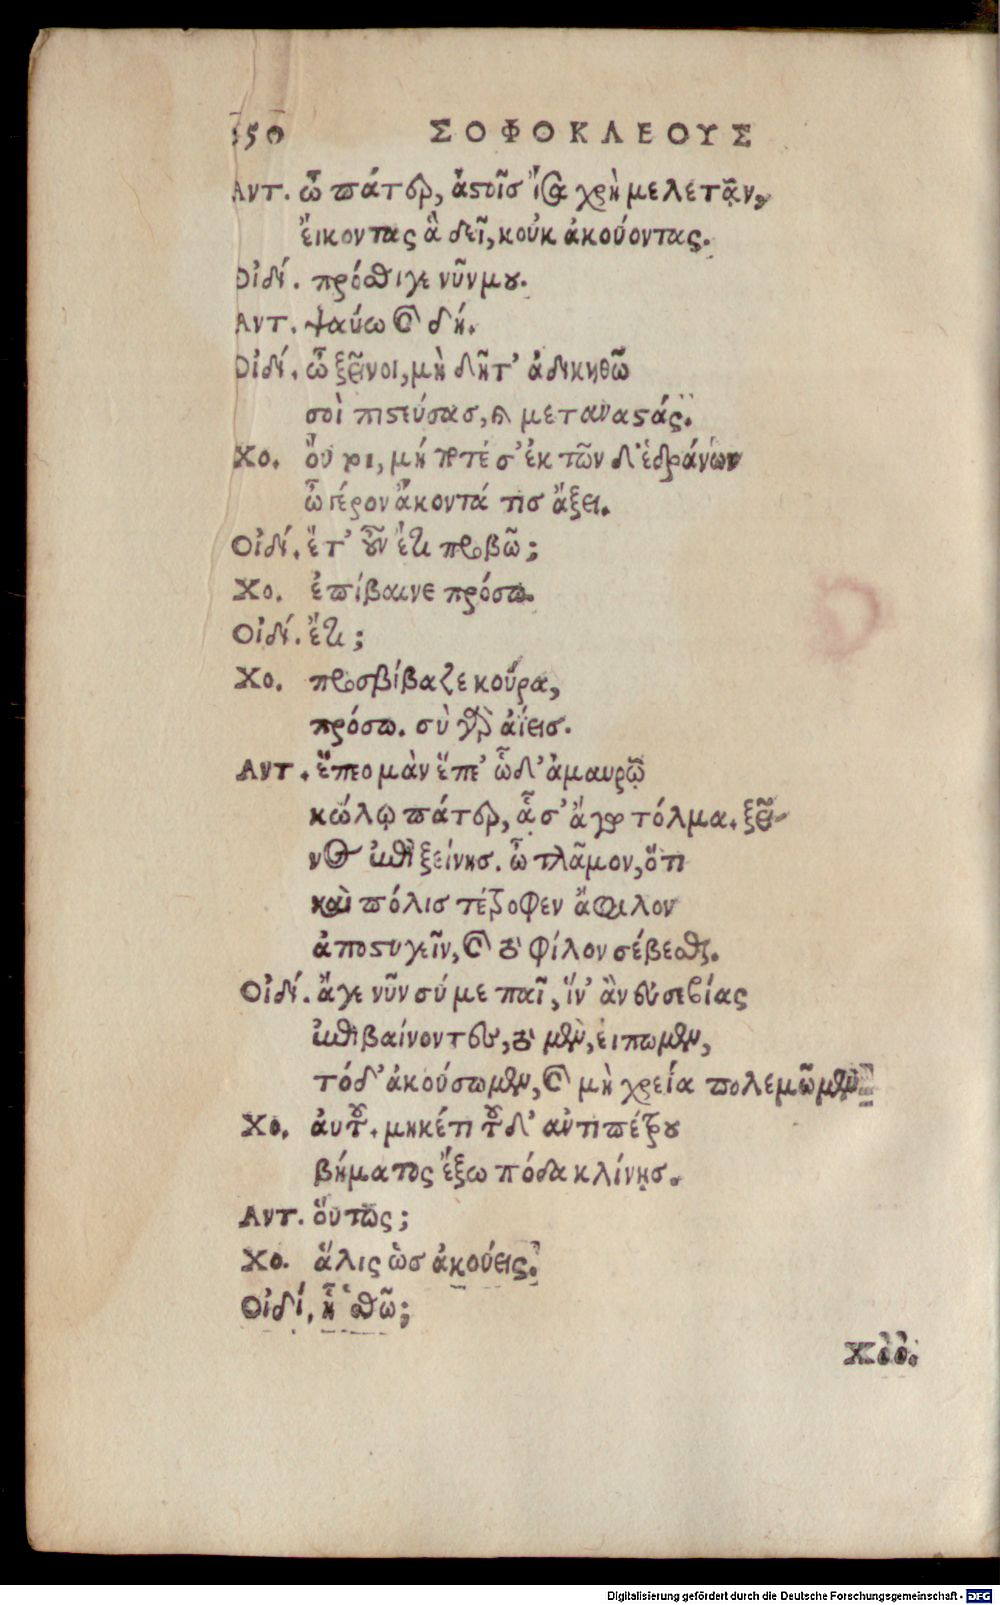 350 ΣΟΦΟΚΛΕΟΥΣ
Αντ. ὦ πάτερ, ἀστοῖσ ἴσα χρὴ μελετᾷν,
ἔικοντας ἃ δεῖ, κοὐκ ἀκούοντας.
Οἰδί. πρόσθιγε νῦν μου.
Αντ. ψαύω καὶ δή.
Οἰδί. ὦ ξεῖνοι, μὴ δῆτ' ἀδικηθῶ
σοὶ πιστεύσασ, καὶ μεταναστάς.
Χο. ὄυ τοι, μή ποτέ σ' ἐκ τῶν δ' ἑδράνων
ὦ γέρον ἄκοντά τισ ἄξει.
Οἰδί. ἔτ' οὖν ἔτι προβῶ;
Χο. ἐπίβαινε πρόσω.
Οἰδί. ἔτι;
Χο. προσβίβαζε κούρα,
πρόσω. σὺ γὰρ ἀΐεισ.
Αντ. ἕπεο μὰν ἕπε' ὧδ' ἀμαυρῷ
κώλῳ πάτερ, ᾇ σ' ἄγω τόλμα. ξεῖ-
νος ἐπὶ ξείνησ. ὦ τλᾶμον, ὅτι
καὶ πόλισ τέτροφεν ἄφιλον
ἀποστυγεῖν, καὶ τὸ φίλον σέβεσθαι.
Οἰδί. ἄγε νῦν σύ με παῖ, ἵν' ἂν εὐσεβίας
ἐπιβαίνοντες, τὸ μὲν, ἐιπωμεν,
τόδ' ἀκούσωμεν, καὶ μὴ χρεία πολεμῶμεν
Χο. ἀυτοῦ. μηκέτι τοῦδ' αὐτιπέτρου
βήματος ἔξω πόδα κλίνῃσ.
Αντ. ὅυτως;
Χο. ἅλις ὡσ ἀκούεις.
Οἰδί. ἦ ἑσθῶ;
Χόό.
Digitalisierung gefördert durch die Deutsche Forschungsgemeinschaft - DFG